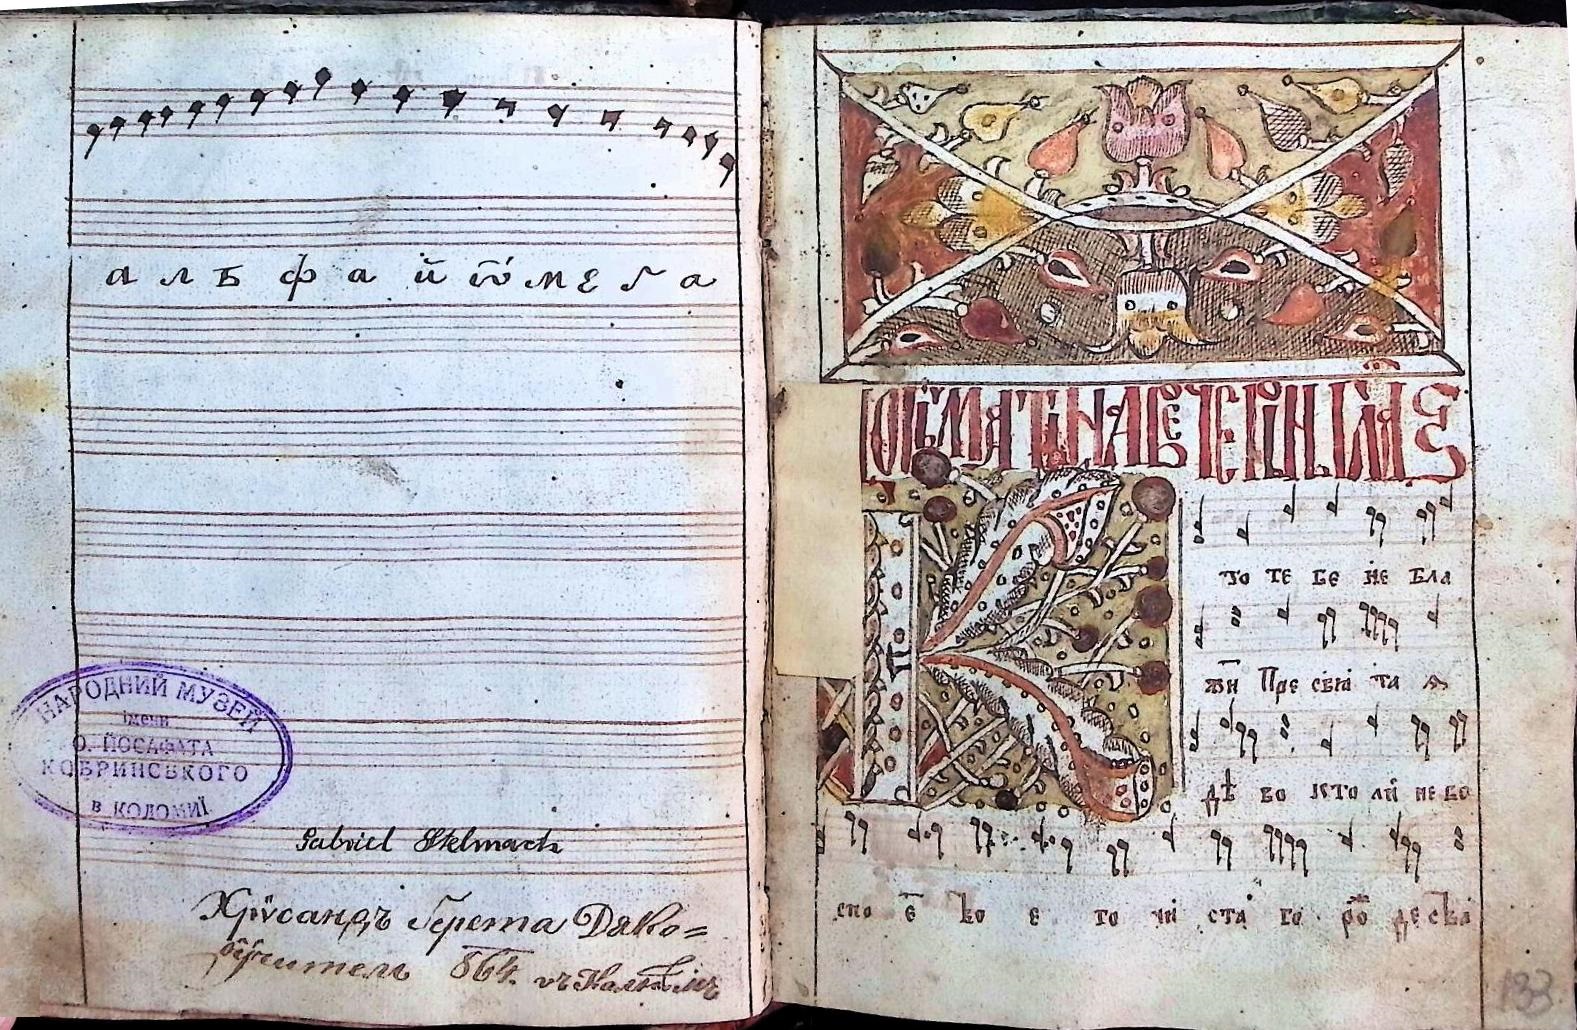 альфа й ѡ҆мега
НАРОДНИЙ МУЗЕЙ
імени
О. ЙОСАФАТА
КОБРИНСЬКОГО
в КОЛОМИЇ
Gabriel Stelmach
Хрѵсандъ Герета Дѧко=
оучитель 864.
то те бе не бла
жи Пре свѧ та ѧ
дѣ во кто ли не во
спо е во е то чи ста го ро де ства
133